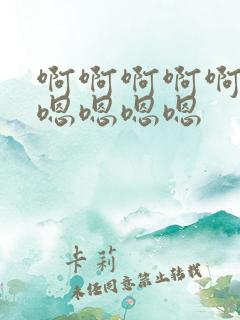 啊啊啊啊啊
嗯嗯嗯嗯
卡莉
未经同意禁止转载